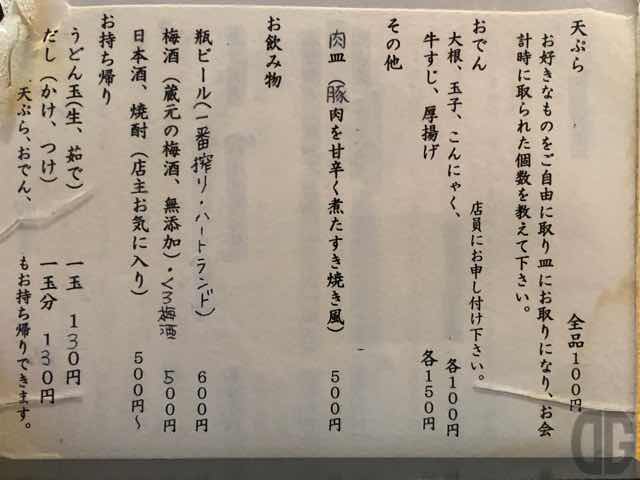 天ぷら　全品100円
お好きなものをご自由に取り皿にお取りになり、お会
計時に取られた個数を教えて下さい。
おでん　店員にお申し付け下さい。
大根、玉子、こんにゃく、　各100円
牛すじ、厚揚げ　各150円
その他
肉皿（豚肉を甘辛く煮たすき焼き風）　500円
お飲み物
瓶ビール（一番搾り・ハートランド）　600円
梅酒（蔵元の梅酒、無添加）・くろ梅酒　500円
日本酒、焼酎（店主お気に入り）　500円〜
お持ち帰り
うどん玉（生、茹で）　一玉　130円
だし（かけ、つけ）　一玉分　130円
天ぷら、おでん、　もお持ち帰りできます。
DG